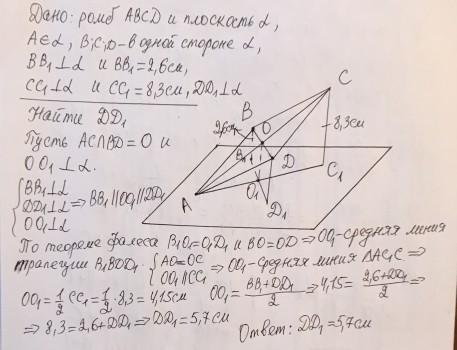 Дано: ромб ABCD и плоскость α,
A∈α, B;C;D-в одной стороне α,
BB₁⊥α и BB₁=2,6см,
CC₁⊥α и CC₁=8,3см, DD₁⊥α
Найти DD₁
Пусть AC∩BD=O и
OO₁⊥α.
{BB₁⊥α
DD₁⊥α ⇒ BB₁∥OO₁∥DD₁
OO₁⊥α
C
B
O
2,6см
8,3см
B₁
D
C₁
A
O₁
D₁
По теореме Фалеса B₁O₁=O₁D₁ и BO=OD ⇒ OO₁-средняя линия
трапеции B₁BDD₁. {AO=OC OO₁∥CC₁ ⇒ OO₁-средняя линия ΔAC₁C ⇒
OO₁=1/2 CC₁=1/2·8,3=4,15см OO₁=(BB₁+DD₁)/2 ⇒ 4,15=(2,6+DD₁)/2 ⇒
⇒ 8,3=2,6+DD₁ ⇒ DD₁=5,7см
Ответ: DD₁=5,7см